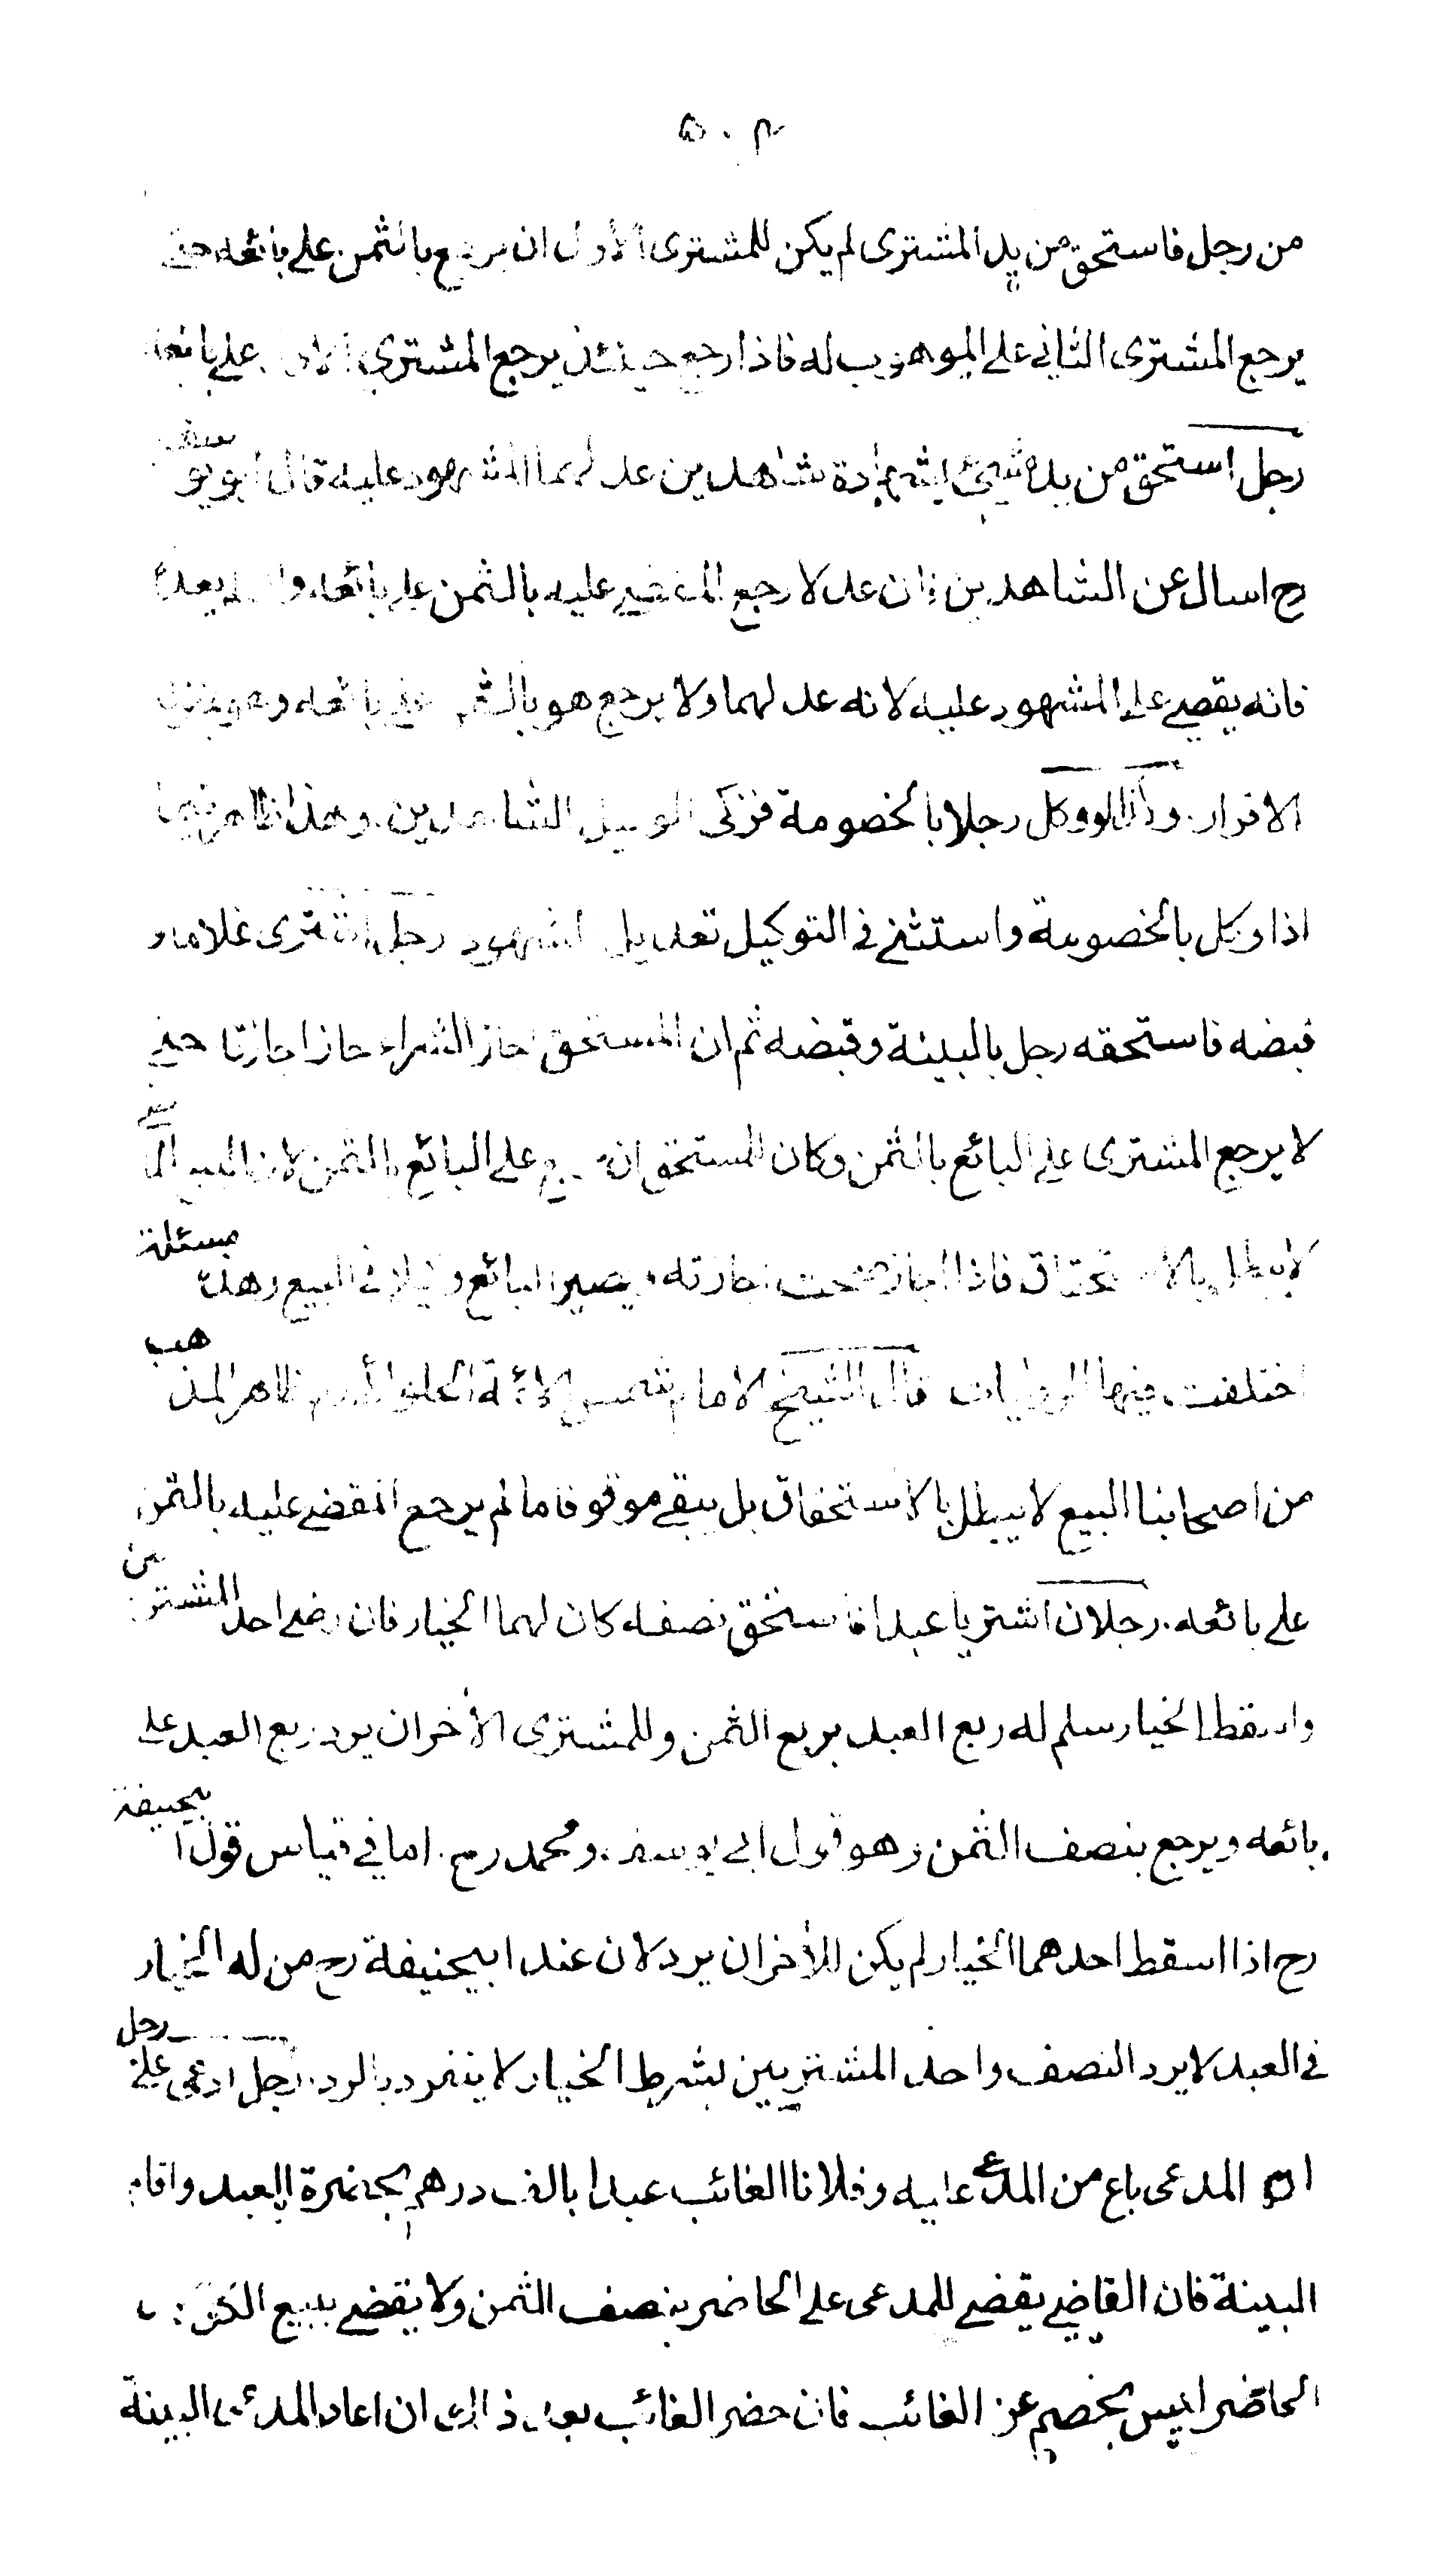 ٥٠٢
من رجل فاستحق من يد المشترى لم يكن للمشترى الأول ان يرجع بالثمن على بائعه حتى
يرجع المشترى الثانى على الموهوب له فاذا رجع حينئذ يرجع المشترى الاول على بائعه
رجل استحق من يده شيئ بشهادة شاهدين عدلهما المشهود عليه قال ابو يوسف
رح اسال عن الشاهدين فان عدلا رجع المقضى عليه بالثمن على بائعه وان لم يعدلا
فانه يقضى على المشهود عليه لانه عدلهما ولا يرجع هو بالثمن على بائعه وهو بمنزلة
الاقرار. وكذا لو وكل رجلا بالخصومة فزكى الوكيل الشاهدين. وهذا ظاهر فيما
اذا وكل بالخصومة واستثنى فى التوكيل تعديل الشهود رجل اشترى غلاما و
قبضه فاستحقه رجل بالبينة وقبضه ثم ان المستحق اجاز الشراء جاز اجازته حتى
لا يرجع المشترى على البائع بالثمن وكان للمستحق ان يرجع على البائع بالثمن لان البيع الماضى
لا يبطل بالاستحقاق فاذا اجاز صحت اجازته ويصير البائع وكيلا فى البيع وهذه مسئلة
اختلفت فيها الروايات قال الشيخ الامام شمس الائمة الحلوائى رح ظاهر المذهب
من اصحابنا البيع لا يبطل بالاستحقاق بل يبقى موقوفا ما لم يرجع المقضى عليه بالثمن
على بائعه. رجلان اشتريا عبدا فاستحق نصفه كان لهما الخيار فان رضى احد المشتريين
واسقط الخيار سلم له ربع العبد بربع الثمن وللمشترى الأخر ان يرد ربع العبد على
بائعه ويرجع بنصف الثمن وهو قول ابى يوسف ومحمد رح. اما فى قياس قول ابيحنيفة
رح اذا اسقط احدهما الخيار لم يكن للأخر ان يرد لان عند ابيحنيفة رح من له الخيار
فى العبد لا يرد النصف واحد المشتريين بشرط الخيار لا ينفرد بالرد. رجل ادعى على رجل
ان المدعى باع من المدعى عليه وفلانا الغائب عبدا بالف درهم بحضرة العبد واقام
البينة فان القاضى يقضى للمدعى على الحاضر بنصف الثمن ولا يقضى ببيع الكل
الحاضر ليس بخصم عن الغائب فان حضر الغائب بعد ذلك ان اعاد المدعى البينة